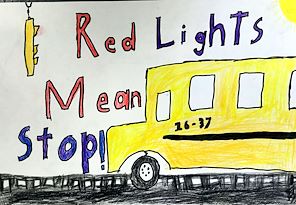 Red Lights
Mean
Stop!
16-37